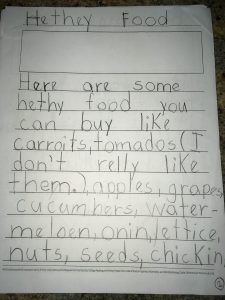 Hethey Food
Here are some
hethy food you
can buy like
carroits, tomados (I
don't relly like
them.) apples, grapes,
cucumbers, water-
meloen, onin, lettice,
nuts, seeds, chickin,